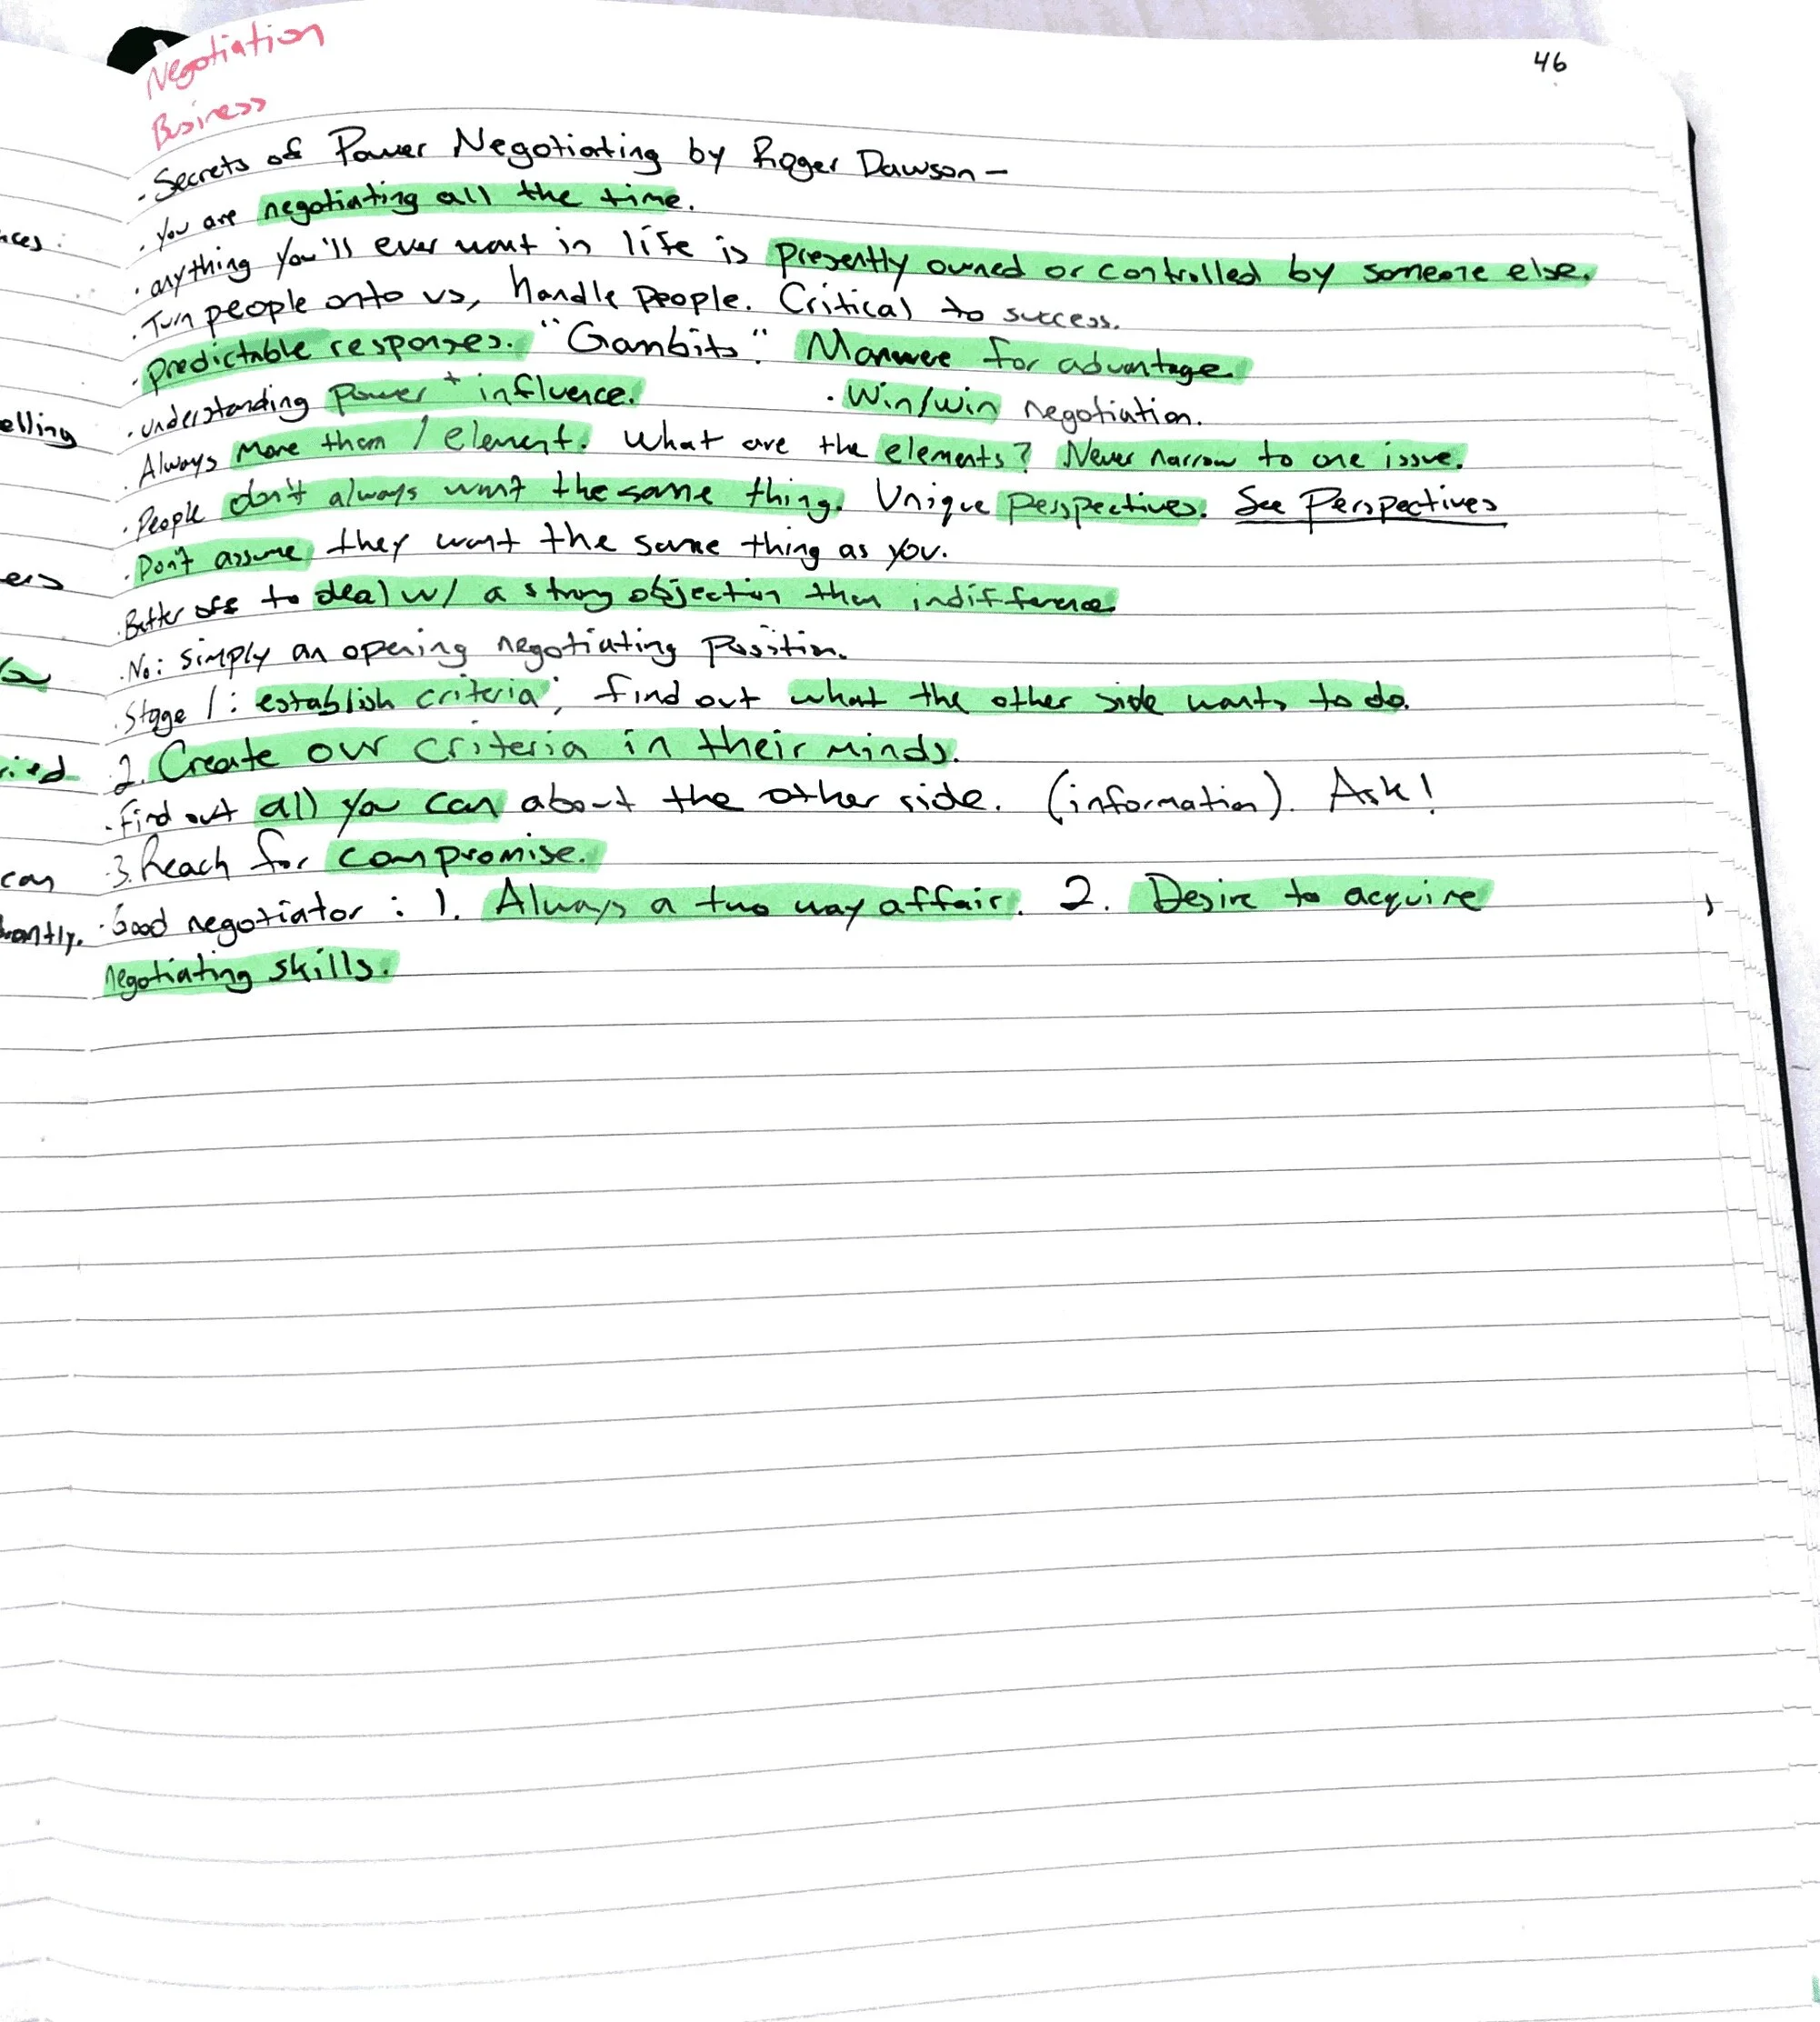 Negotiation
Business
46
· Secrets of Power Negotiating by Roger Dawson —
· You are negotiating all the time.
· anything you'll ever want in life is presently owned or controlled by someone else.
· Turn people onto us, handle people. Critical to success.
· predictable responses. "Gambits". for advantage.
· understanding power + influence. · Win/win negotiation.
· Always more than 1 element. What are the elements? Never narrow to one issue.
· People don't always want the same thing. Unique perspectives. See Perspectives
· Don't assume they want the same thing as you.
· Better off to deal w/ a strong objection than indifference.
· No: simply an opening negotiating position.
· Stage 1: establish criteria; find out what the other side wants to do.
2. Create our criteria in their minds.
· Find out all you can about the other side. (information). Ask!
3. Reach for compromise.
· Good negotiator: 1. Always a two way affair. 2. Desire to acquire
negotiating skills.
elling
can